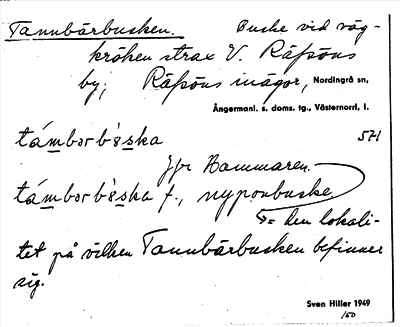 Tannbärbusken. Buske vid väg-
kröken strax V. Räfsöns
by, Räfsöns inägor, Nordingrå sn,
Ångermanl. s. doms. tg., Västernorrl. l.
támbɑrbʹɛska 571
Jfr Hammaren.
támbɑrbʹɛska f., nyponbuske.
↳ = den lokali-
tet på vilken Tannbärbusken befinner
sig.
Sven Hiller 1949
/50